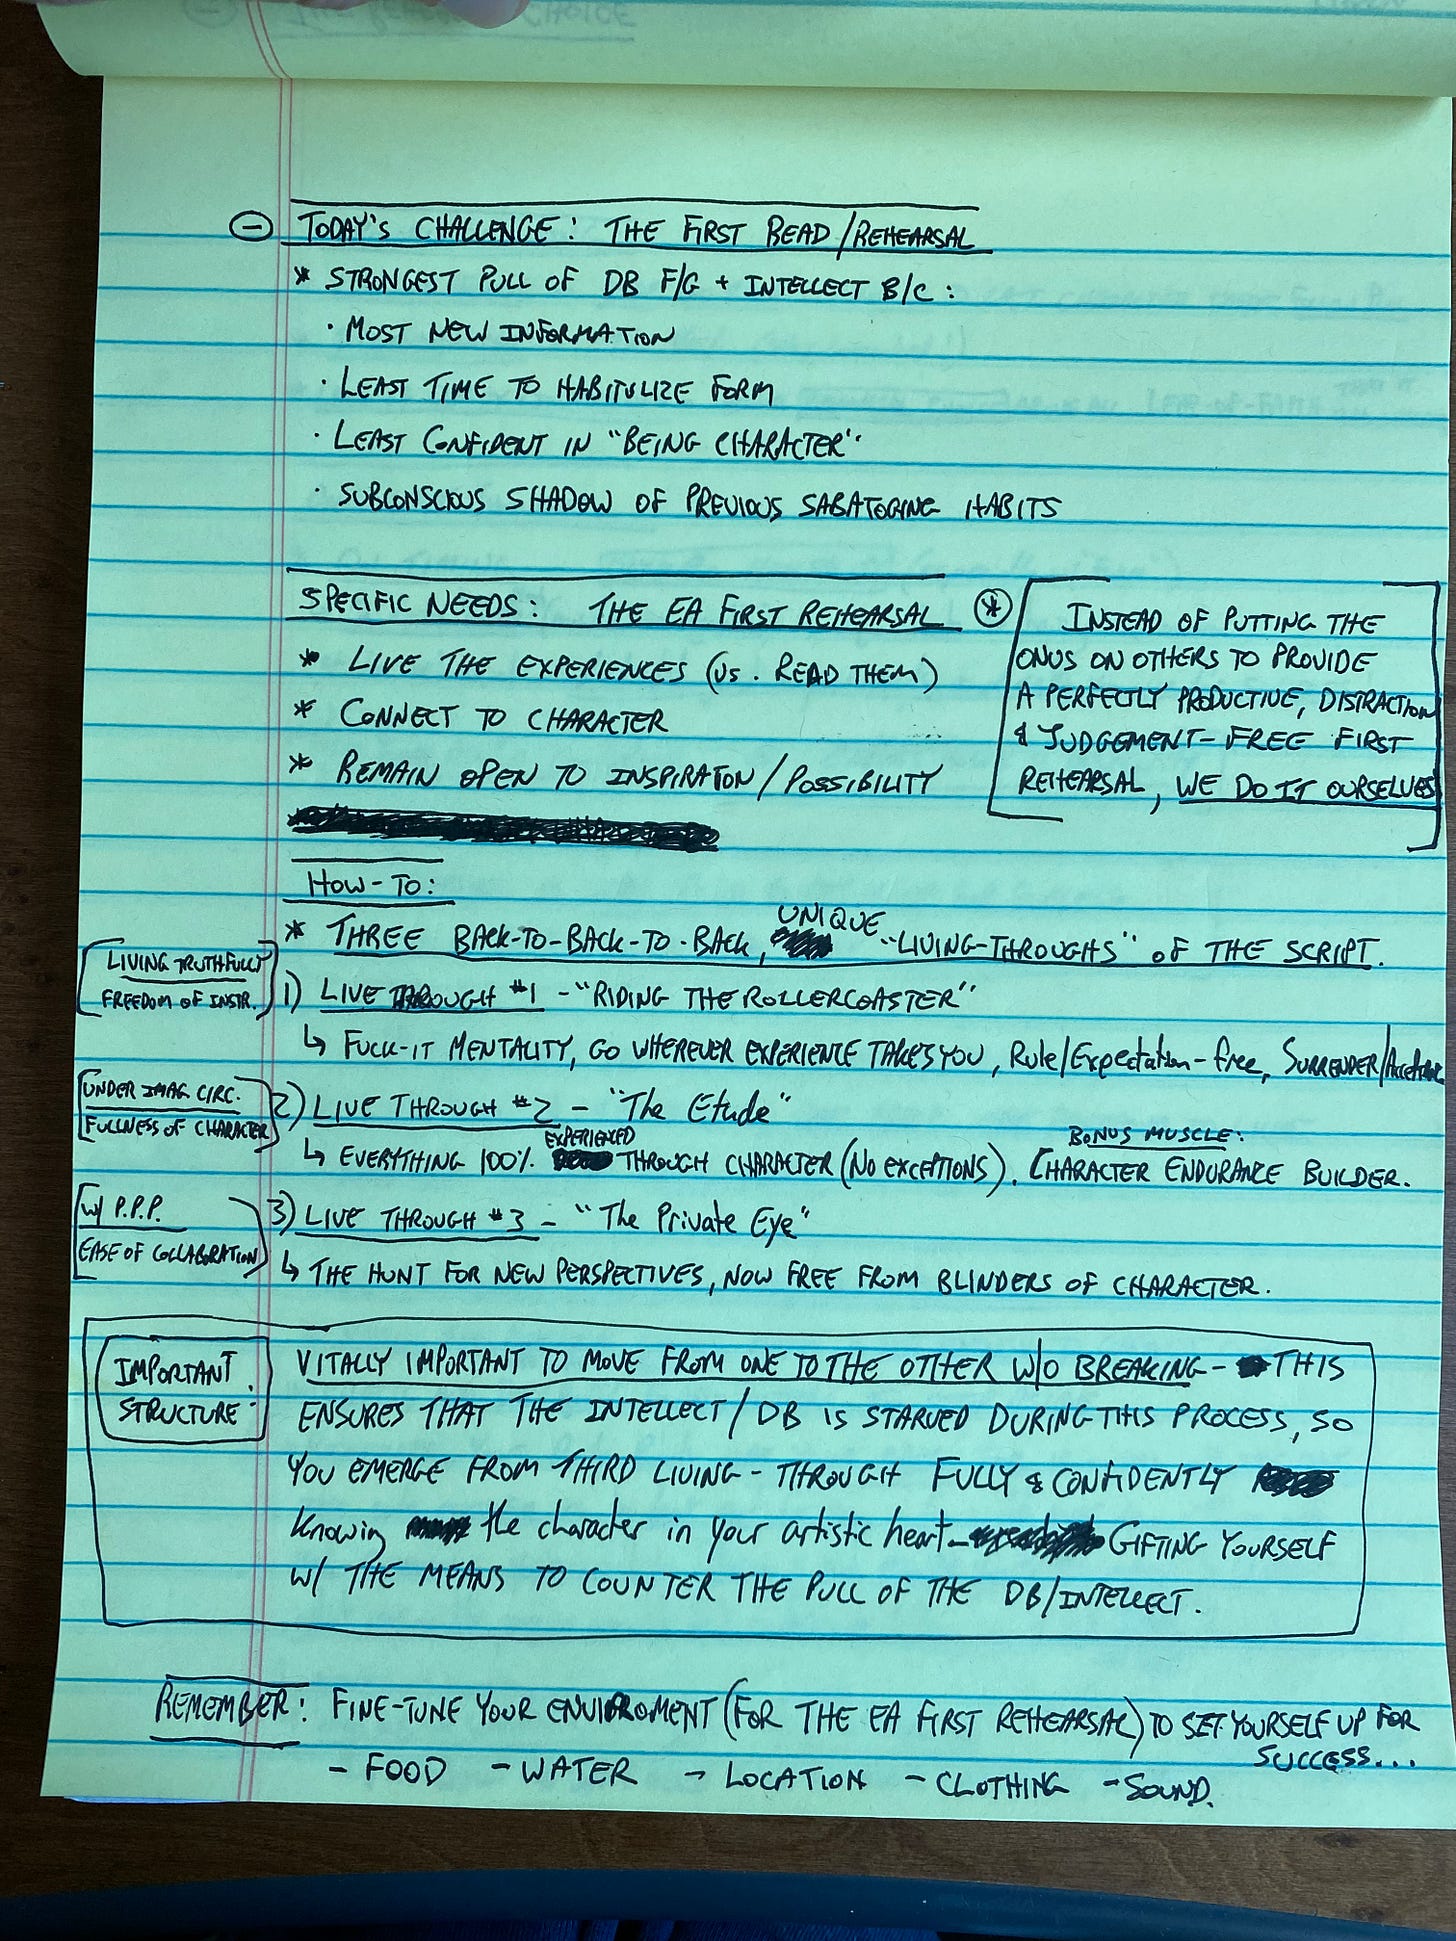 TODAY'S CHALLENGE: THE FIRST READ/REHEARSAL
* STRONGEST PULL OF DB F/G + INTELLECT B/C:
· MOST NEW INFORMATION
· LEAST TIME TO HABITULIZE FORM
· LEAST CONFIDENT IN "BEING CHARACTER"
· SUBCONSCIOUS SHADOW OF PREVIOUS SABATOGING HABITS
SPECIFIC NEEDS: THE EA FIRST REHEARSAL
* LIVE THE EXPERIENCES (VS. READ THEM)
* CONNECT TO CHARACTER
* REMAIN OPEN TO INSPIRATON/POSSIBILITY
* INSTEAD OF PUTTING THE
ONUS ON OTHERS TO PROVIDE
A PERFECTLY PRODUCTIVE, DISTRACTION
& JUDGEMENT-FREE FIRST
REHEARSAL, WE DO IT OURSELVES
HOW-TO:
* THREE BACK-TO-BACK-TO-BACK, UNIQUE "LIVING-THROUGHS" OF THE SCRIPT.
LIVING TRUTHFULLY
FREEDOM OF INSTR.
1) LIVE THROUGH #1 - "RIDING THE ROLLERCOASTER"
↳ FUCK-IT MENTALITY, GO WHEREVER EXPERIENCE TAKES YOU, Rule/Expectation-free, SURRENDER/Acceptance
UNDER IMAG CIRC.
FULLNESS OF CHARACTER
2) LIVE THROUGH #2 - "The Etude"
↳ EVERYTHING 100% EXPERIENCED THROUGH CHARACTER (NO EXCEPTIONS). BONUS MUSCLE: CHARACTER ENDURANCE BUILDER.
W/ P.P.P.
EASE OF COLLABORATION
3) LIVE THROUGH #3 - "The Private Eye"
↳ THE HUNT FOR NEW PERSPECTIVES, NOW FREE FROM BLINDERS OF CHARACTER.
IMPORTANT
STRUCTURE:
VITALLY IMPORTANT TO MOVE FROM ONE TO THE OTHER W/O BREAKING - THIS
ENSURES THAT THE INTELLECT/DB IS STARVED DURING THIS PROCESS, SO
YOU EMERGE FROM THIRD LIVING-THROUGH FULLY & CONFIDENTLY
Knowing the character in your artistic heart - GIFTING YOURSELF
W/ THE MEANS TO COUNTER THE PULL OF THE DB/INTELLECT.
REMEMBER: FINE-TUNE YOUR ENVIROMENT (FOR THE EA FIRST REHEARSAL) TO SET YOURSELF UP FOR
SUCCESS...
- FOOD - WATER - LOCATION - CLOTHING - SOUND.